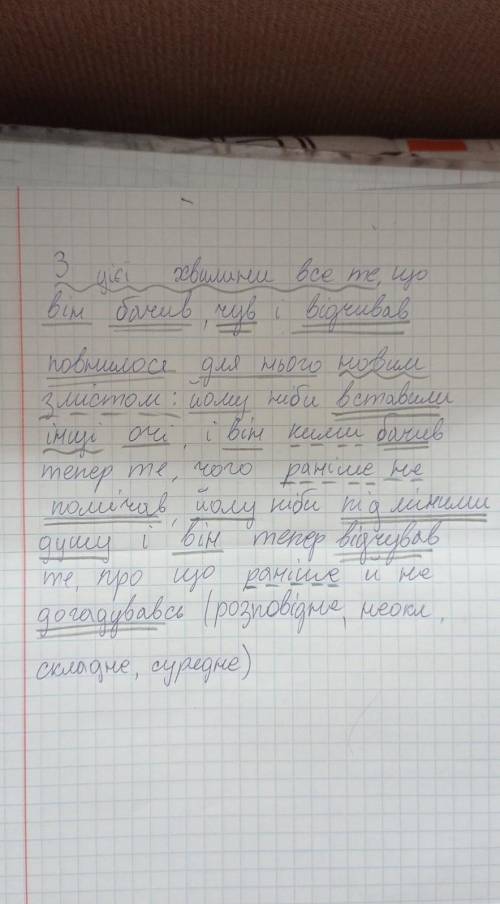 З цієї хвилини все те, що
він бачив, чув і відчував
повнилося для нього новим
змістом: йому ніби вставили
інші очі, і він ними бачив
тепер те, чого раніше не
помічав, йому ніби підмінили
душу і він тепер відчував
те, про що раніше й не
догадувавсь (розповідне, неокл,
складне, сурядне)